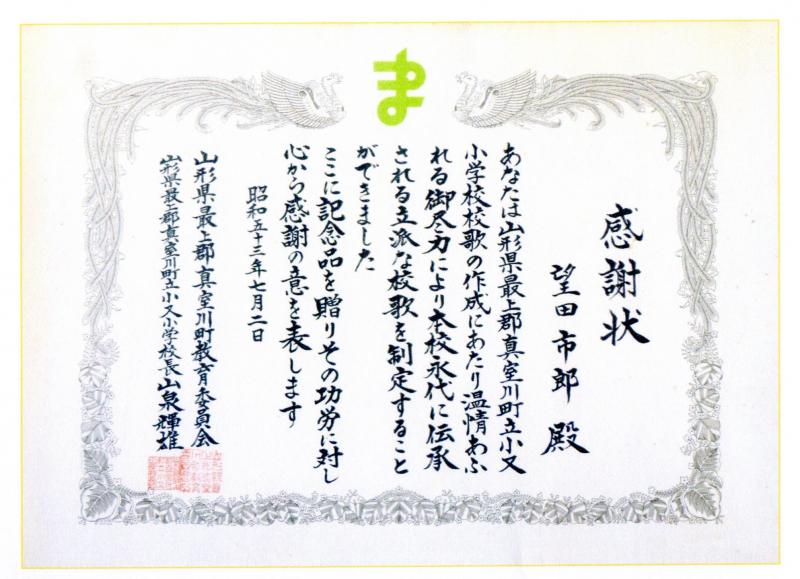 感謝状
望田市郎 殿
あなたは山形県最上郡真室川町立小又
小学校校歌の作成にあたり温情あふ
れる御尽力により本校永代に伝承
される立派な校歌を制定すること
ができました
ここに記念品を贈りその功労に対し
心から感謝の意を表します
昭和五十三年七月二日
山形県最上郡真室川町教育委員会
山形県最上郡真室川町立小又小学校長 山泉輝雄